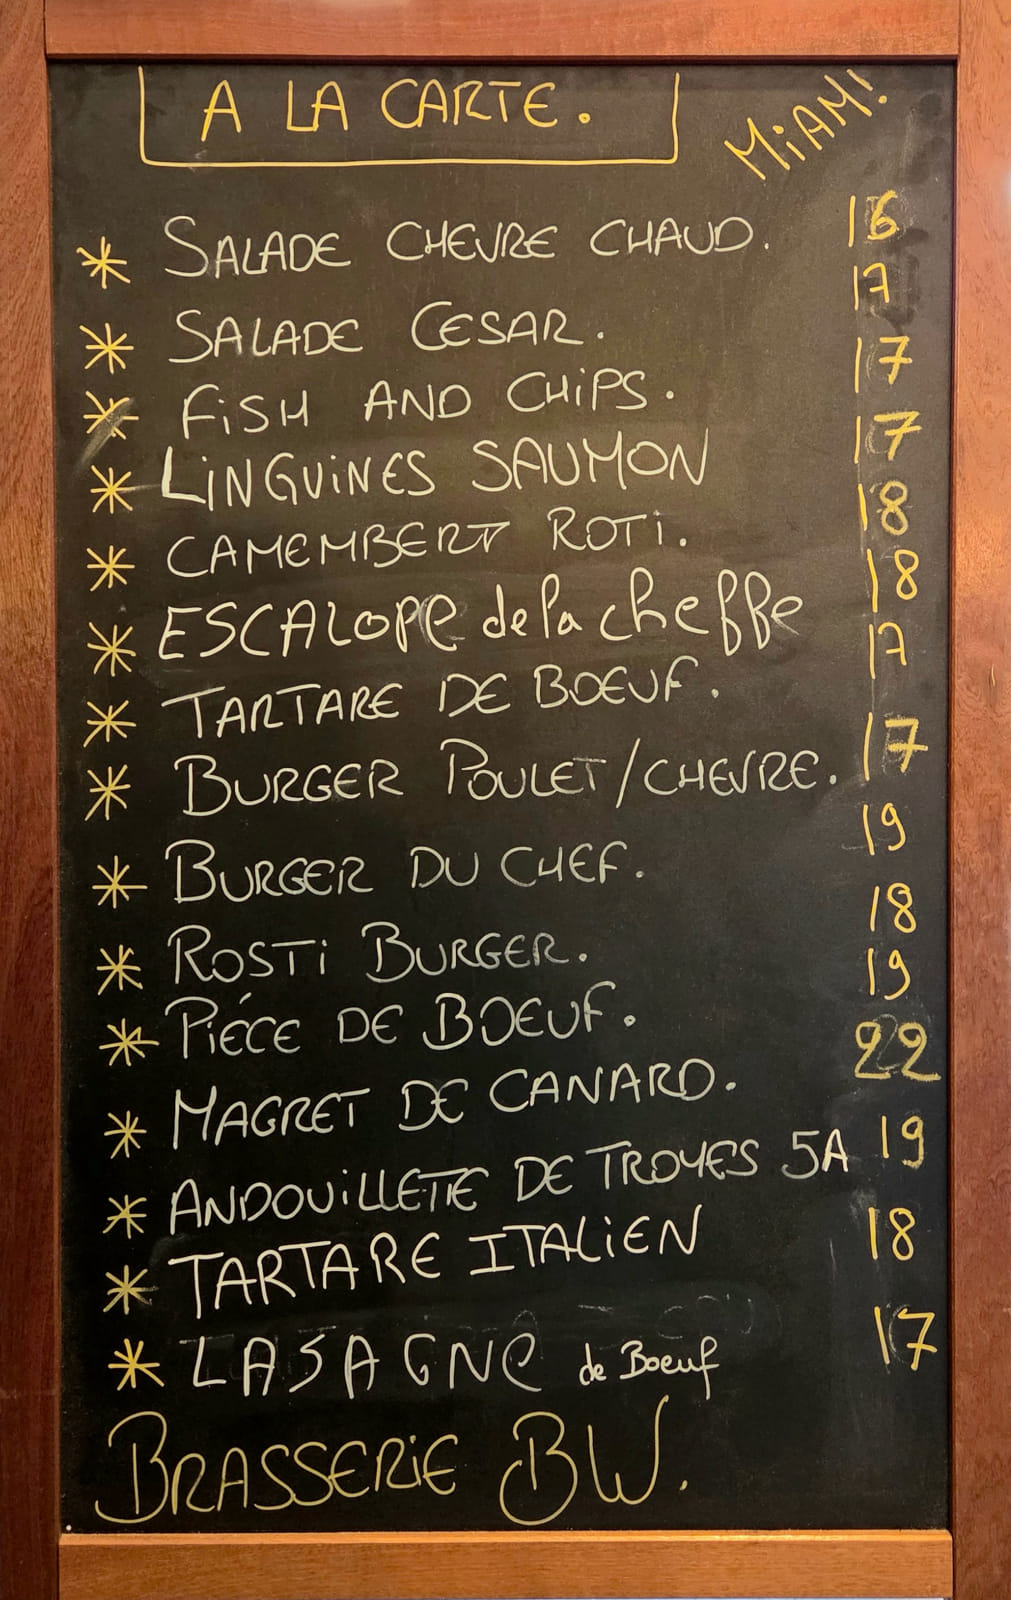 A LA CARTE.
MiAM!
* SALADE CHEVRE CHAUD. 16
* SALADE CESAR. 17
* FiSH AND CHiPS. 17
* LiNGUiNES SAUMON 17
* CAMEMBERT ROTi. 18
* ESCALOPE de la cheffe 18
* TARTARE DE BOEUF. 17
* BURGER POULET/CHEVRE. 17
* BURGER DU CHEF. 19
* ROSTi BURGER. 18
* PiÉCE DE BOEUF. 19
* MAGRET DE CANARD. 22
* ANDOUiLLETTE DE TROYES 5A 19
* TARTARE ITALiEN 18
* LASAGNe de Boeuf 17
BRASSERiE BW.